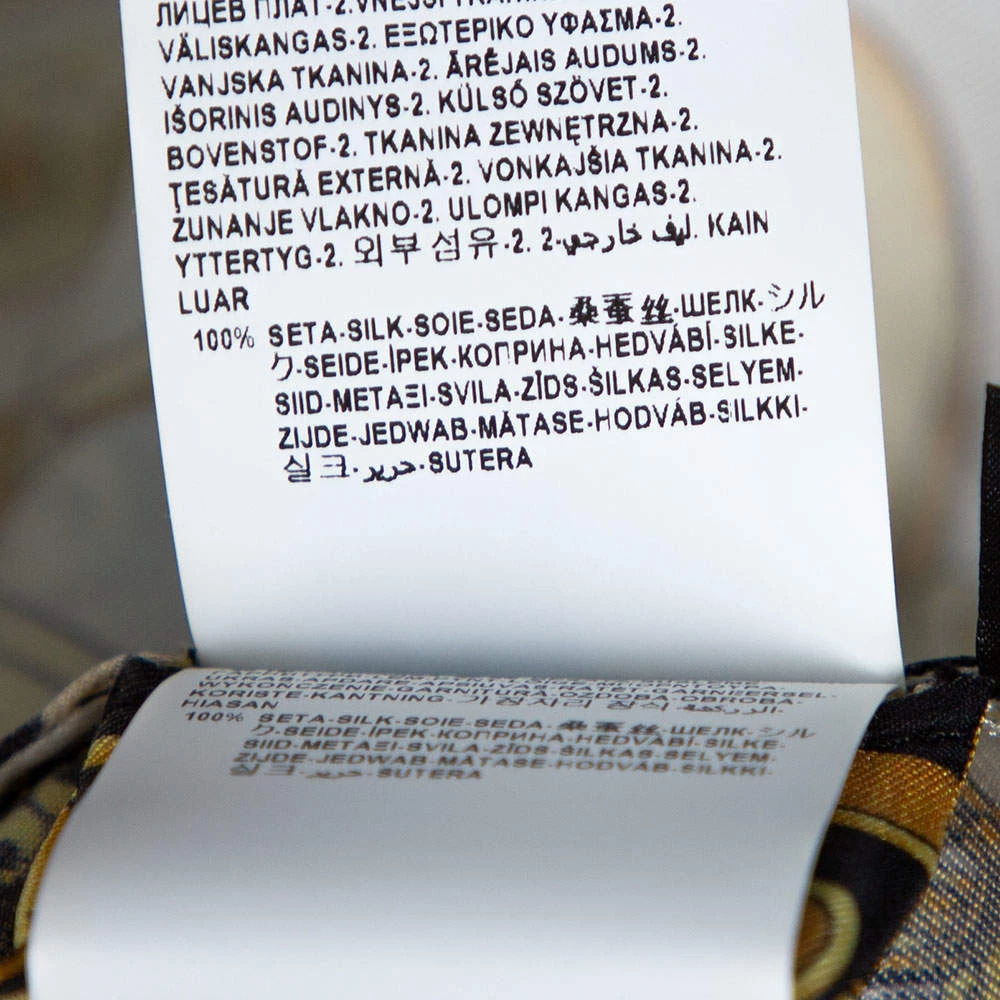 ЛИЦЕВ ПЛАТ-2. VNĚJŠÍ
VÄLISKANGAS-2. ΕΞΩΤΕΡΙΚΟ ΥΦΑΣΜΑ-2.
VANJSKA TKANINA-2. ĀRĒJAIS AUDUMS-2.
IŠORINIS AUDINYS-2. KÜLSŐ SZÖVET-2.
BOVENSTOF-2. TKANINA ZEWNĘTRZNA-2.
ŢESĂTURĂ EXTERNĂ-2. VONKAJŠIA TKANINA-2.
ZUNANJE VLAKNO-2. ULOMPI KANGAS-2.
YTTERTYG-2. 외부 섬유-2. ليف خارجي-2. KAIN
LUAR
100% SETA-SILK-SOIE-SEDA-桑蚕丝-ШЕЛК-シル
ク-SEIDE-İPEK-КОПРИНА-HEDVÁBÍ-SILKE-
SIID-ΜΕΤΑΞΙ-SVILA-ZĪDS-ŠILKAS-SELYEM-
ZIJDE-JEDWAB-MĂTASE-HODVÁB-SILKKI-
실크-حرير-SUTERA
WYKOŃCZENIE-GARNITURĂ-
KORISTE-KANTNING-가장자리 장식-الزركشة.
HIASAN
100% SETA-SILK-SOIE-SEDA-桑蚕丝-ШЕЛК-シル
ク-SEIDE-İPEK-КОПРИНА-HEDVÁBÍ-SILKE-
SIID-ΜΕΤΑΞΙ-SVILA-ZĪDS-ŠILKAS-SELYEM-
ZIJDE-JEDWAB-MĂTASE-HODVÁB-SILKKI-
실크-حرير-SUTERA